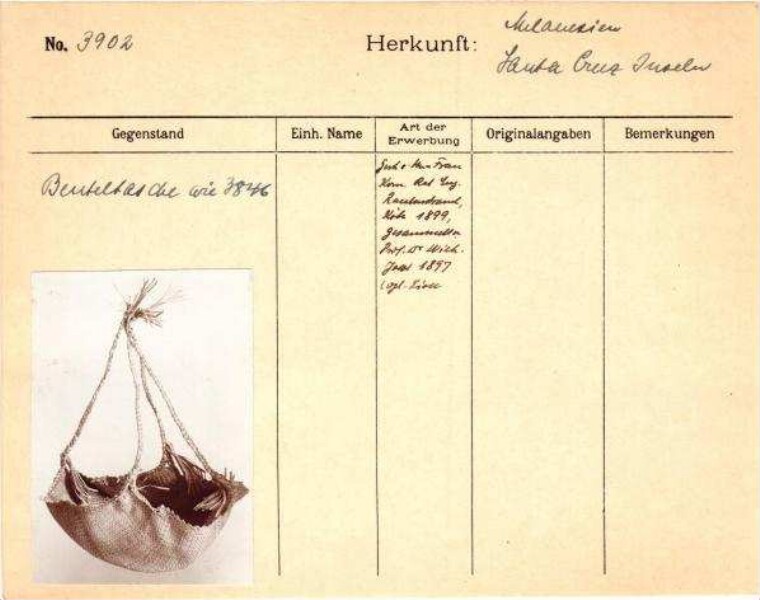 No. 3902
Herkunft:
Melanesien
Santa Cruz Inseln
Gegenstand
Einh. Name
Art der Erwerbung
Originalangaben
Bemerkungen
Beuteltasche wie 3846
Frau
Kom. Rat Eug.
Rautenstrauch,
Köln 1899,
Prof. Dr. Wilh.
Joest 1897